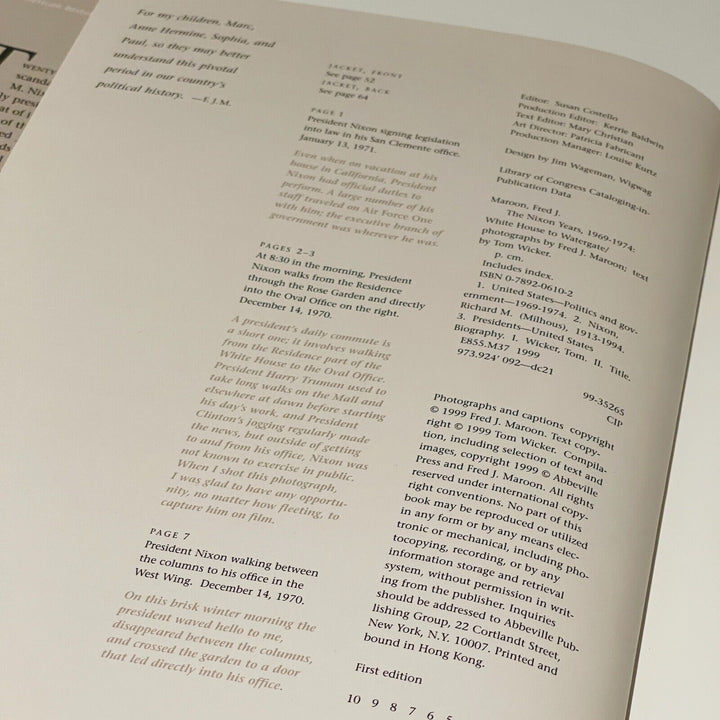 For my children, Marc,
Anne Hermine, Sophia, and
Paul, so they may better
understand this pivotal
period in our country's
political history. —F.J.M.
JACKET, FRONT
See page 52
JACKET, BACK
See page 64
PAGE 1
President Nixon signing legislation
into law in his San Clemente office.
January 13, 1971.
Even when on vacation at his
house in California, President
Nixon had official duties to
perform. A large number of his
staff traveled on Air Force One
with him; the executive branch of
government was wherever he was.
PAGES 2–3
At 8:30 in the morning, President
Nixon walks from the Residence
through the Rose Garden and directly
into the Oval Office on the right.
December 14, 1970.
A president's daily commute is
a short one; it involves walking
from the Residence part of the
White House to the Oval Office.
President Harry Truman used to
take long walks on the Mall and
elsewhere at dawn before starting
his day's work, and President
Clinton's jogging regularly made
the news, but outside of getting
to and from his office, Nixon was
not known to exercise in public.
When I shot this photograph,
I was glad to have any opportu-
nity, no matter how fleeting, to
capture him on film.
PAGE 7
President Nixon walking between
the columns to his office in the
West Wing. December 14, 1970.
On this brisk winter morning the
president waved hello to me,
disappeared between the columns,
and crossed the garden to a door
that led directly into his office.
Editor: Susan Costello
Production Editor: Kerrie Baldwin
Text Editor: Mary Christian
Art Director: Patricia Fabricant
Production Manager: Louise Kurtz
Design by Jim Wageman, Wigwag
Library of Congress Cataloging-in-
Publication Data
Maroon, Fred J.
The Nixon Years, 1969-1974:
White House to Watergate/
photographs by Fred J. Maroon; text
by Tom Wicker.
p. cm.
Includes index.
ISBN 0-7892-0610-2
1. United States—Politics and gov-
ernment—1969-1974. 2. Nixon,
Richard M. (Milhous), 1913-1994.
3. Presidents—United States
Biography. I. Wicker, Tom. II. Title.
E855.M37 1999
973.924' 092—dc21
99-35265
CIP
Photographs and captions copyright
© 1999 Fred J. Maroon. Text copy-
right © 1999 Tom Wicker. Compila-
tion, including selection of text and
images, copyright 1999 © Abbeville
Press and Fred J. Maroon. All rights
reserved under international copy-
right conventions. No part of this
book may be reproduced or utilized
in any form or by any means elec-
tronic or mechanical, including pho-
tocopying, recording, or by any
information storage and retrieval
system, without permission in writ-
ing from the publisher. Inquiries
should be addressed to Abbeville Pub-
lishing Group, 22 Cortlandt Street,
New York, N.Y. 10007. Printed and
bound in Hong Kong.
First edition
10 9 8 7 6